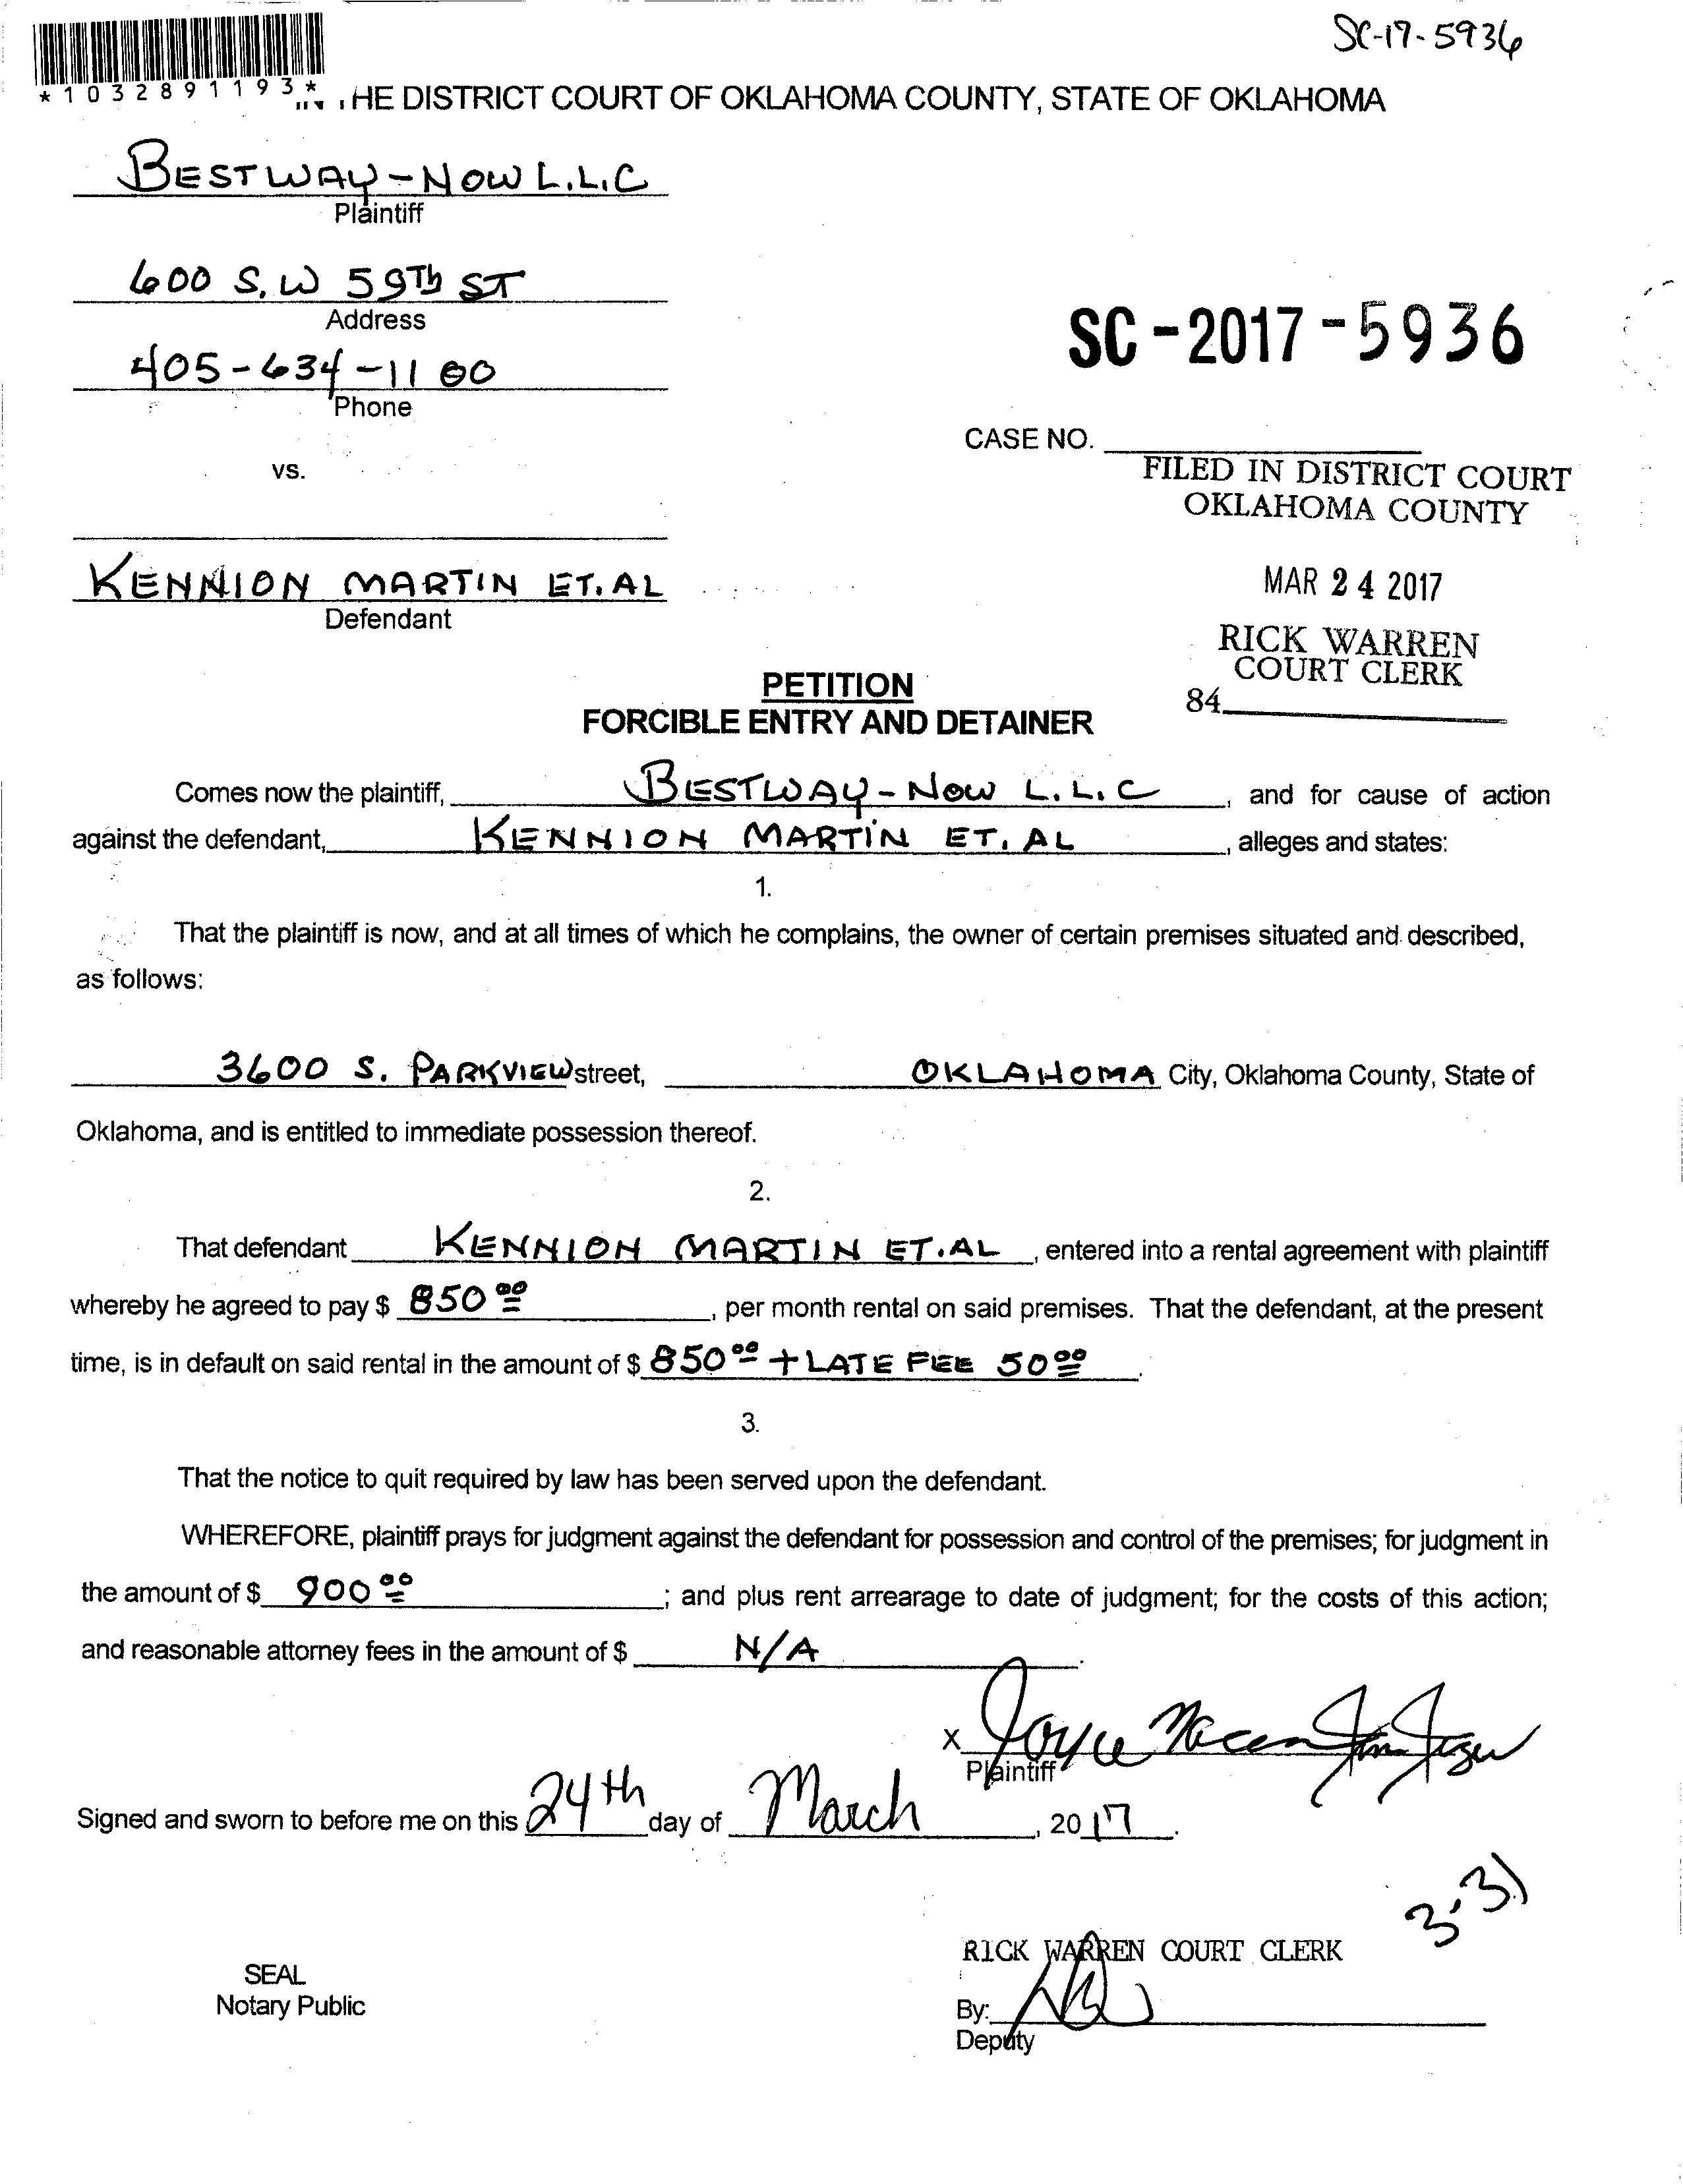 SC-17-5936
*1032891193*
THE DISTRICT COURT OF OKLAHOMA COUNTY, STATE OF OKLAHOMA
BESTWAY-NOW L.L.C
Plaintiff
600 S.W 59Th ST
Address
405-634-1100
Phone
SC-2017-5936
CASE NO.
vs.
FILED IN DISTRICT COURT
OKLAHOMA COUNTY
KENNION MARTIN ET.AL
Defendant
MAR 24 2017
RICK WARREN
COURT CLERK
84
PETITION
FORCIBLE ENTRY AND DETAINER
Comes now the plaintiff, BESTWAY-NOW L.L.C, and for cause of action
against the defendant, KENNION MARTIN ET. AL, alleges and states:
1.
That the plaintiff is now, and at all times of which he complains, the owner of certain premises situated and described,
as follows:
3600 S. PARKVIEW street, OKLAHOMA City, Oklahoma County, State of
Oklahoma, and is entitled to immediate possession thereof.
2.
That defendant KENNION MARTIN ET.AL, entered into a rental agreement with plaintiff
whereby he agreed to pay $ 850 00, per month rental on said premises. That the defendant, at the present
time, is in default on said rental in the amount of $ 850 00 + LATE FEE 50 00.
3.
That the notice to quit required by law has been served upon the defendant.
WHEREFORE, plaintiff prays for judgment against the defendant for possession and control of the premises; for judgment in
the amount of $ 900 00; and plus rent arrearage to date of judgment; for the costs of this action;
and reasonable attorney fees in the amount of $ N/A.
x Joyce
Plaintiff
Signed and sworn to before me on this 24th day of March, 2017.
3-31
RICK WARREN COURT CLERK
SEAL
Notary Public
By:
Deputy